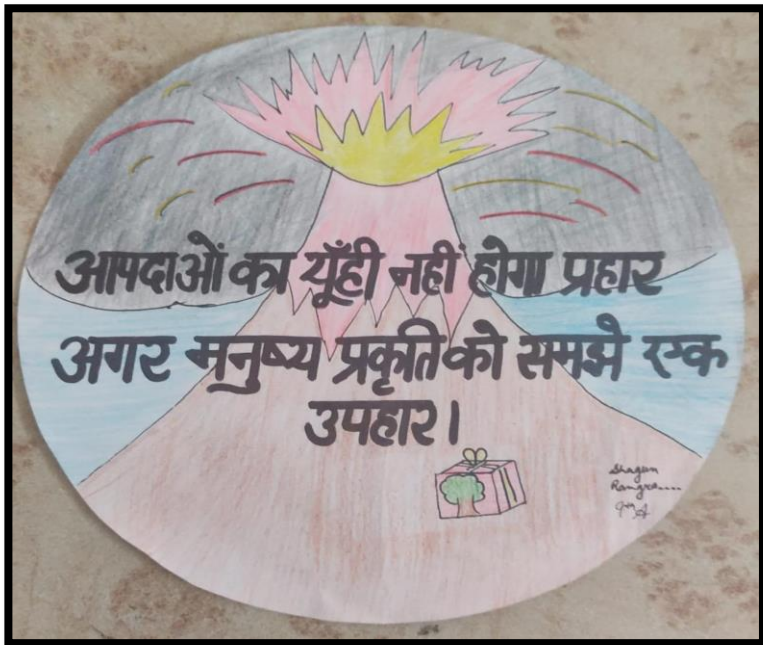 आपदाओं का यूँही नहीं होगा प्रहार
अगर मनुष्य प्रकृति को समझे एक
उपहार।
Shagun
Rangra....
9th A